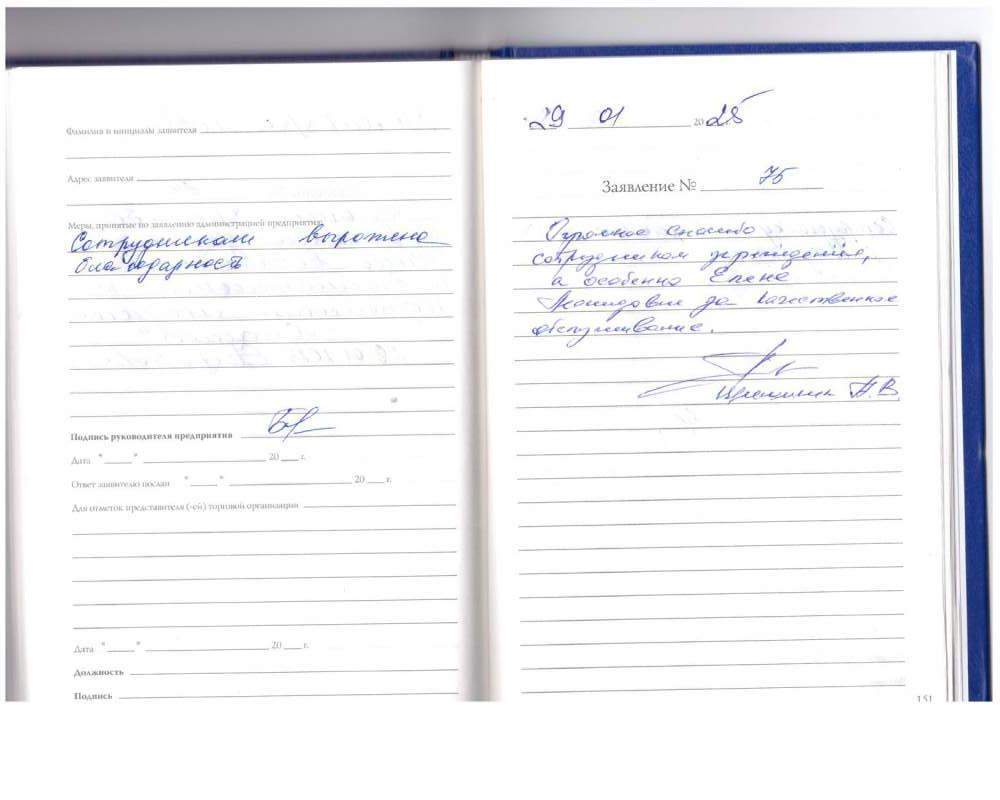 Фамилия и инициалы заявителя
Адрес заявителя
Меры, принятые по заявлению администрацией предприятия:
Сотрудникам выражена
благодарность
Подпись руководителя предприятия
Дата " " 20 г.
Ответ заявителю послан " " 20 г.
Для отметок представителя (-ей) торговой организации
Дата " " 20 г.
Должность
Подпись
"29 01 2025
Заявление № 75
Огромное спасибо
сотрудникам учреждения,
а особенно Елене
Леонидовне за качественное
обслуживание.
Н.В.
151